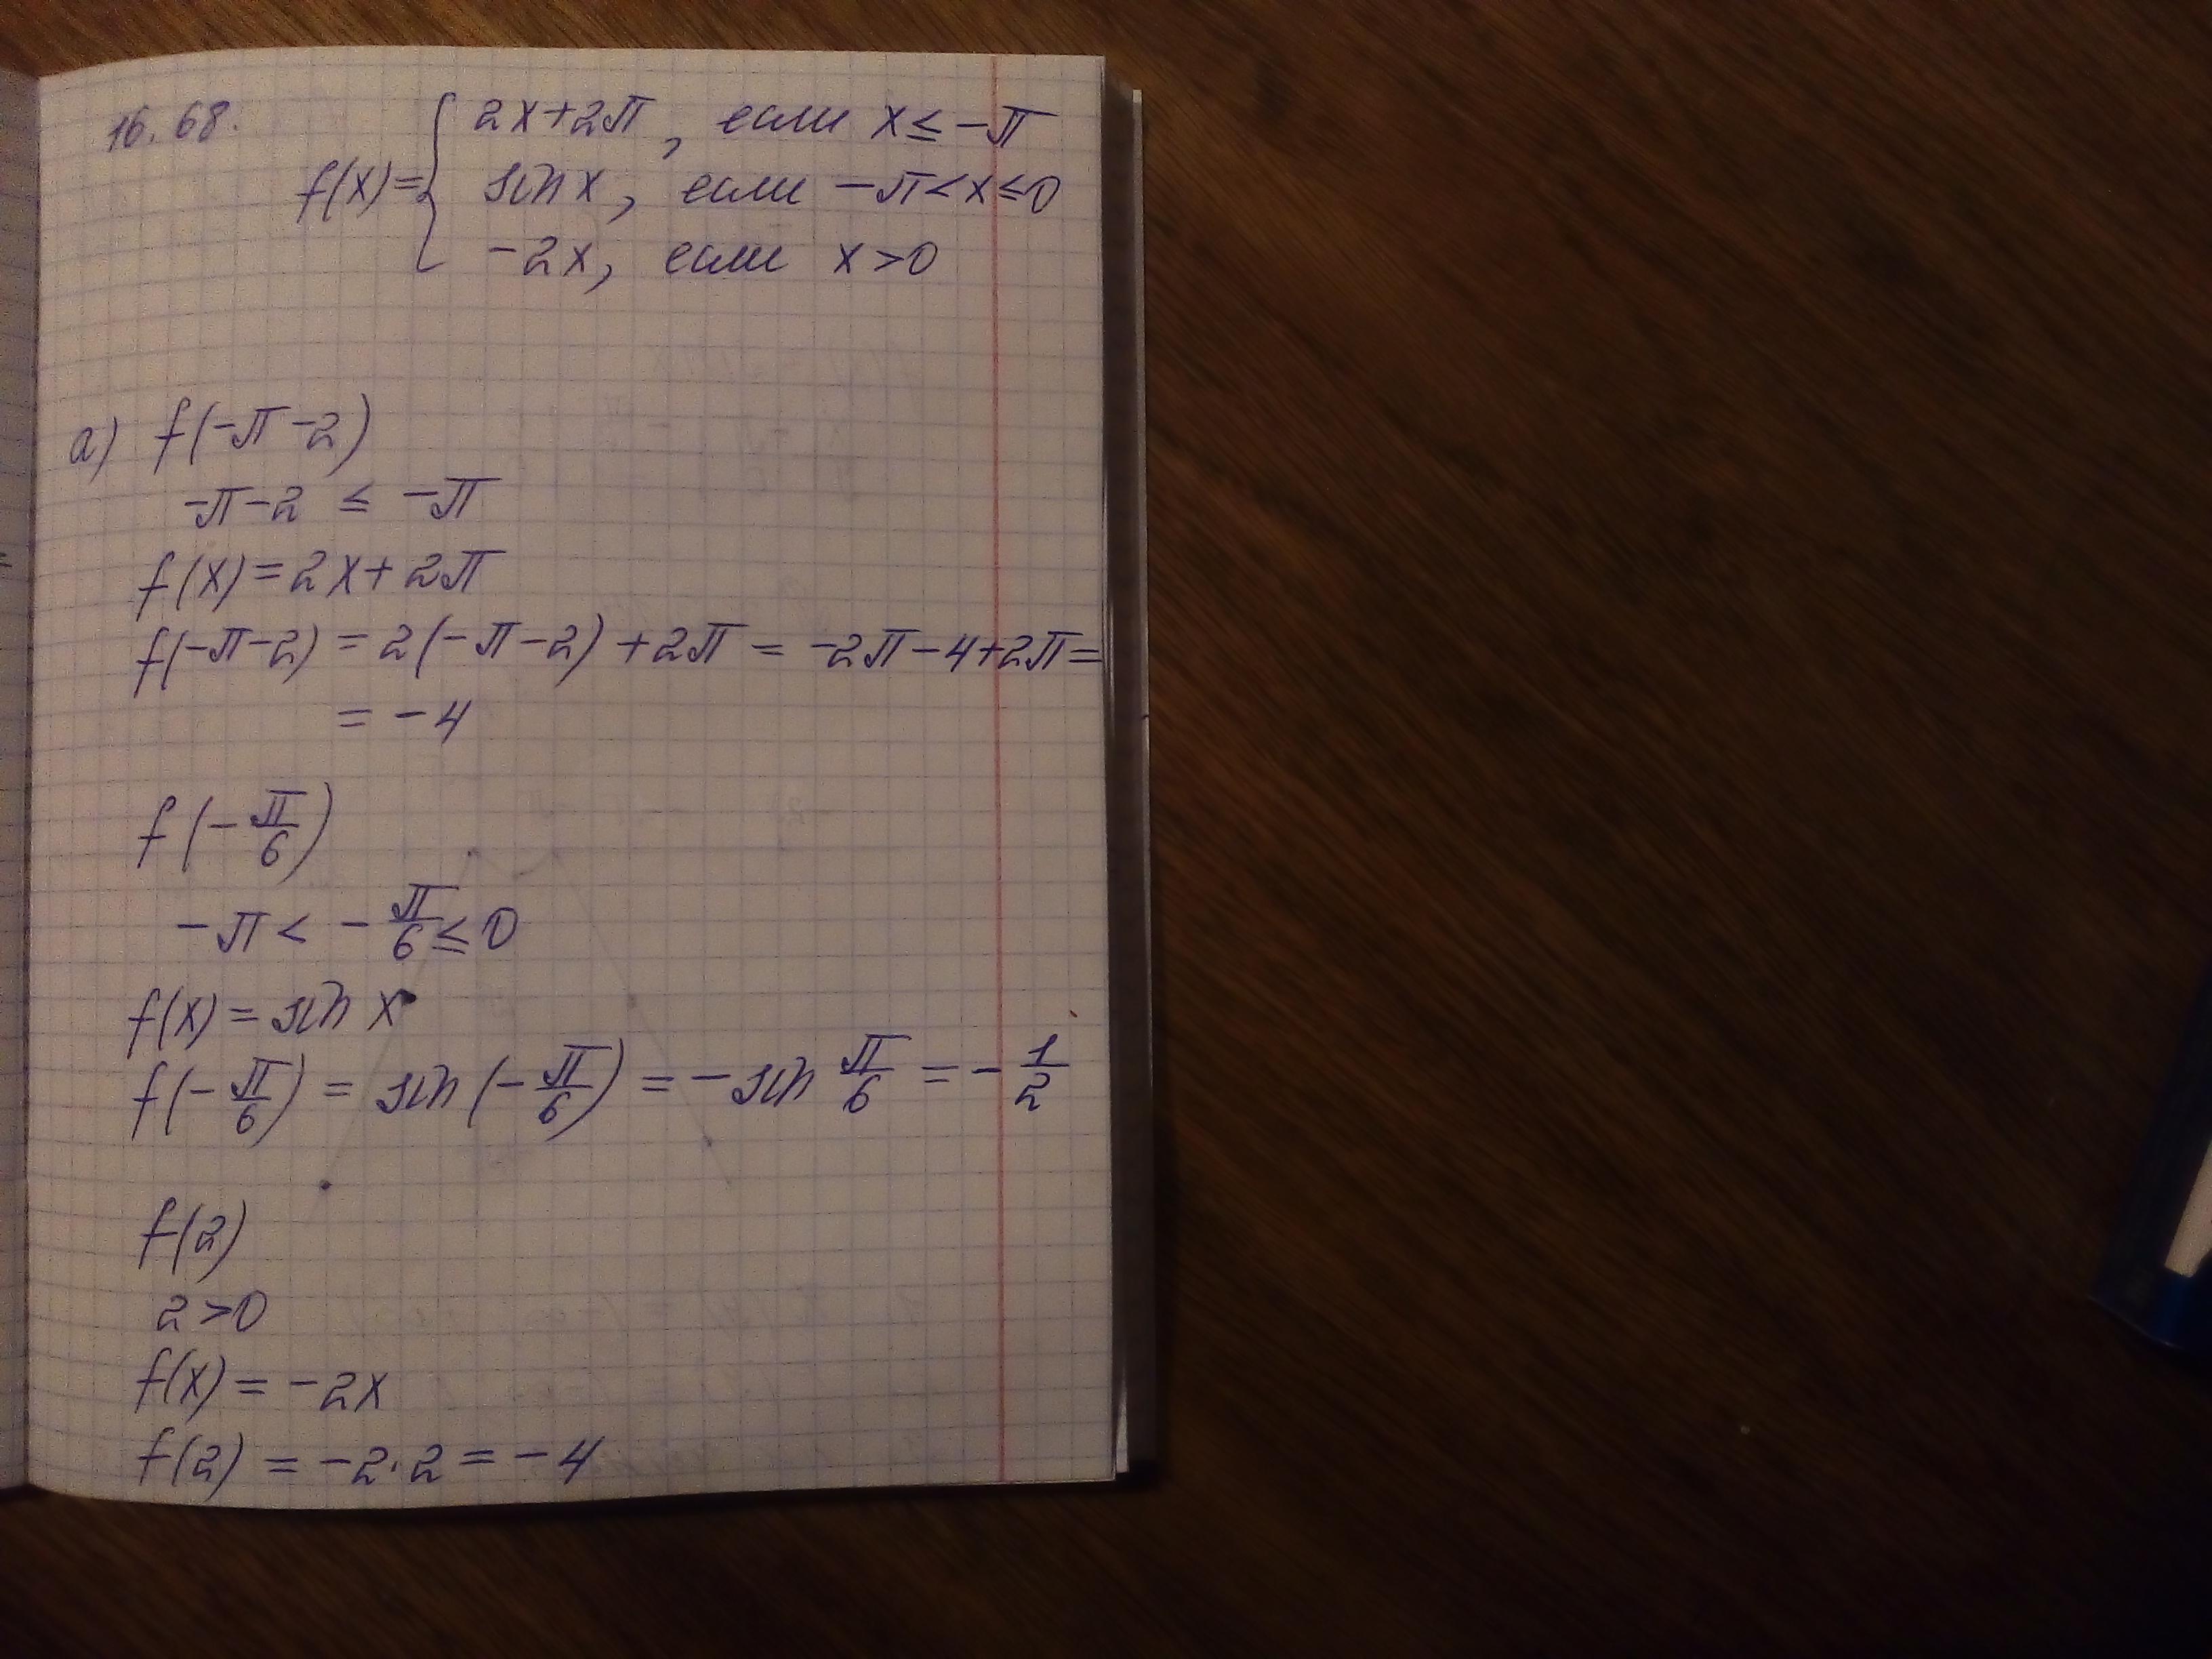 16.68.
f(x) = { 2x+2π, если x ≤ -π
sin x, если -π < x ≤ 0
-2x, если x > 0
а) f(-π-2)
-π-2 ≤ -π
f(x) = 2x + 2π
f(-π-2) = 2(-π-2) + 2π = -2π-4+2π =
= -4
f(-π/6)
-π < -π/6 ≤ 0
f(x) = sin x
f(-π/6) = sin(-π/6) = -sin π/6 = -1/2
f(2)
2 > 0
f(x) = -2x
f(2) = -2·2 = -4